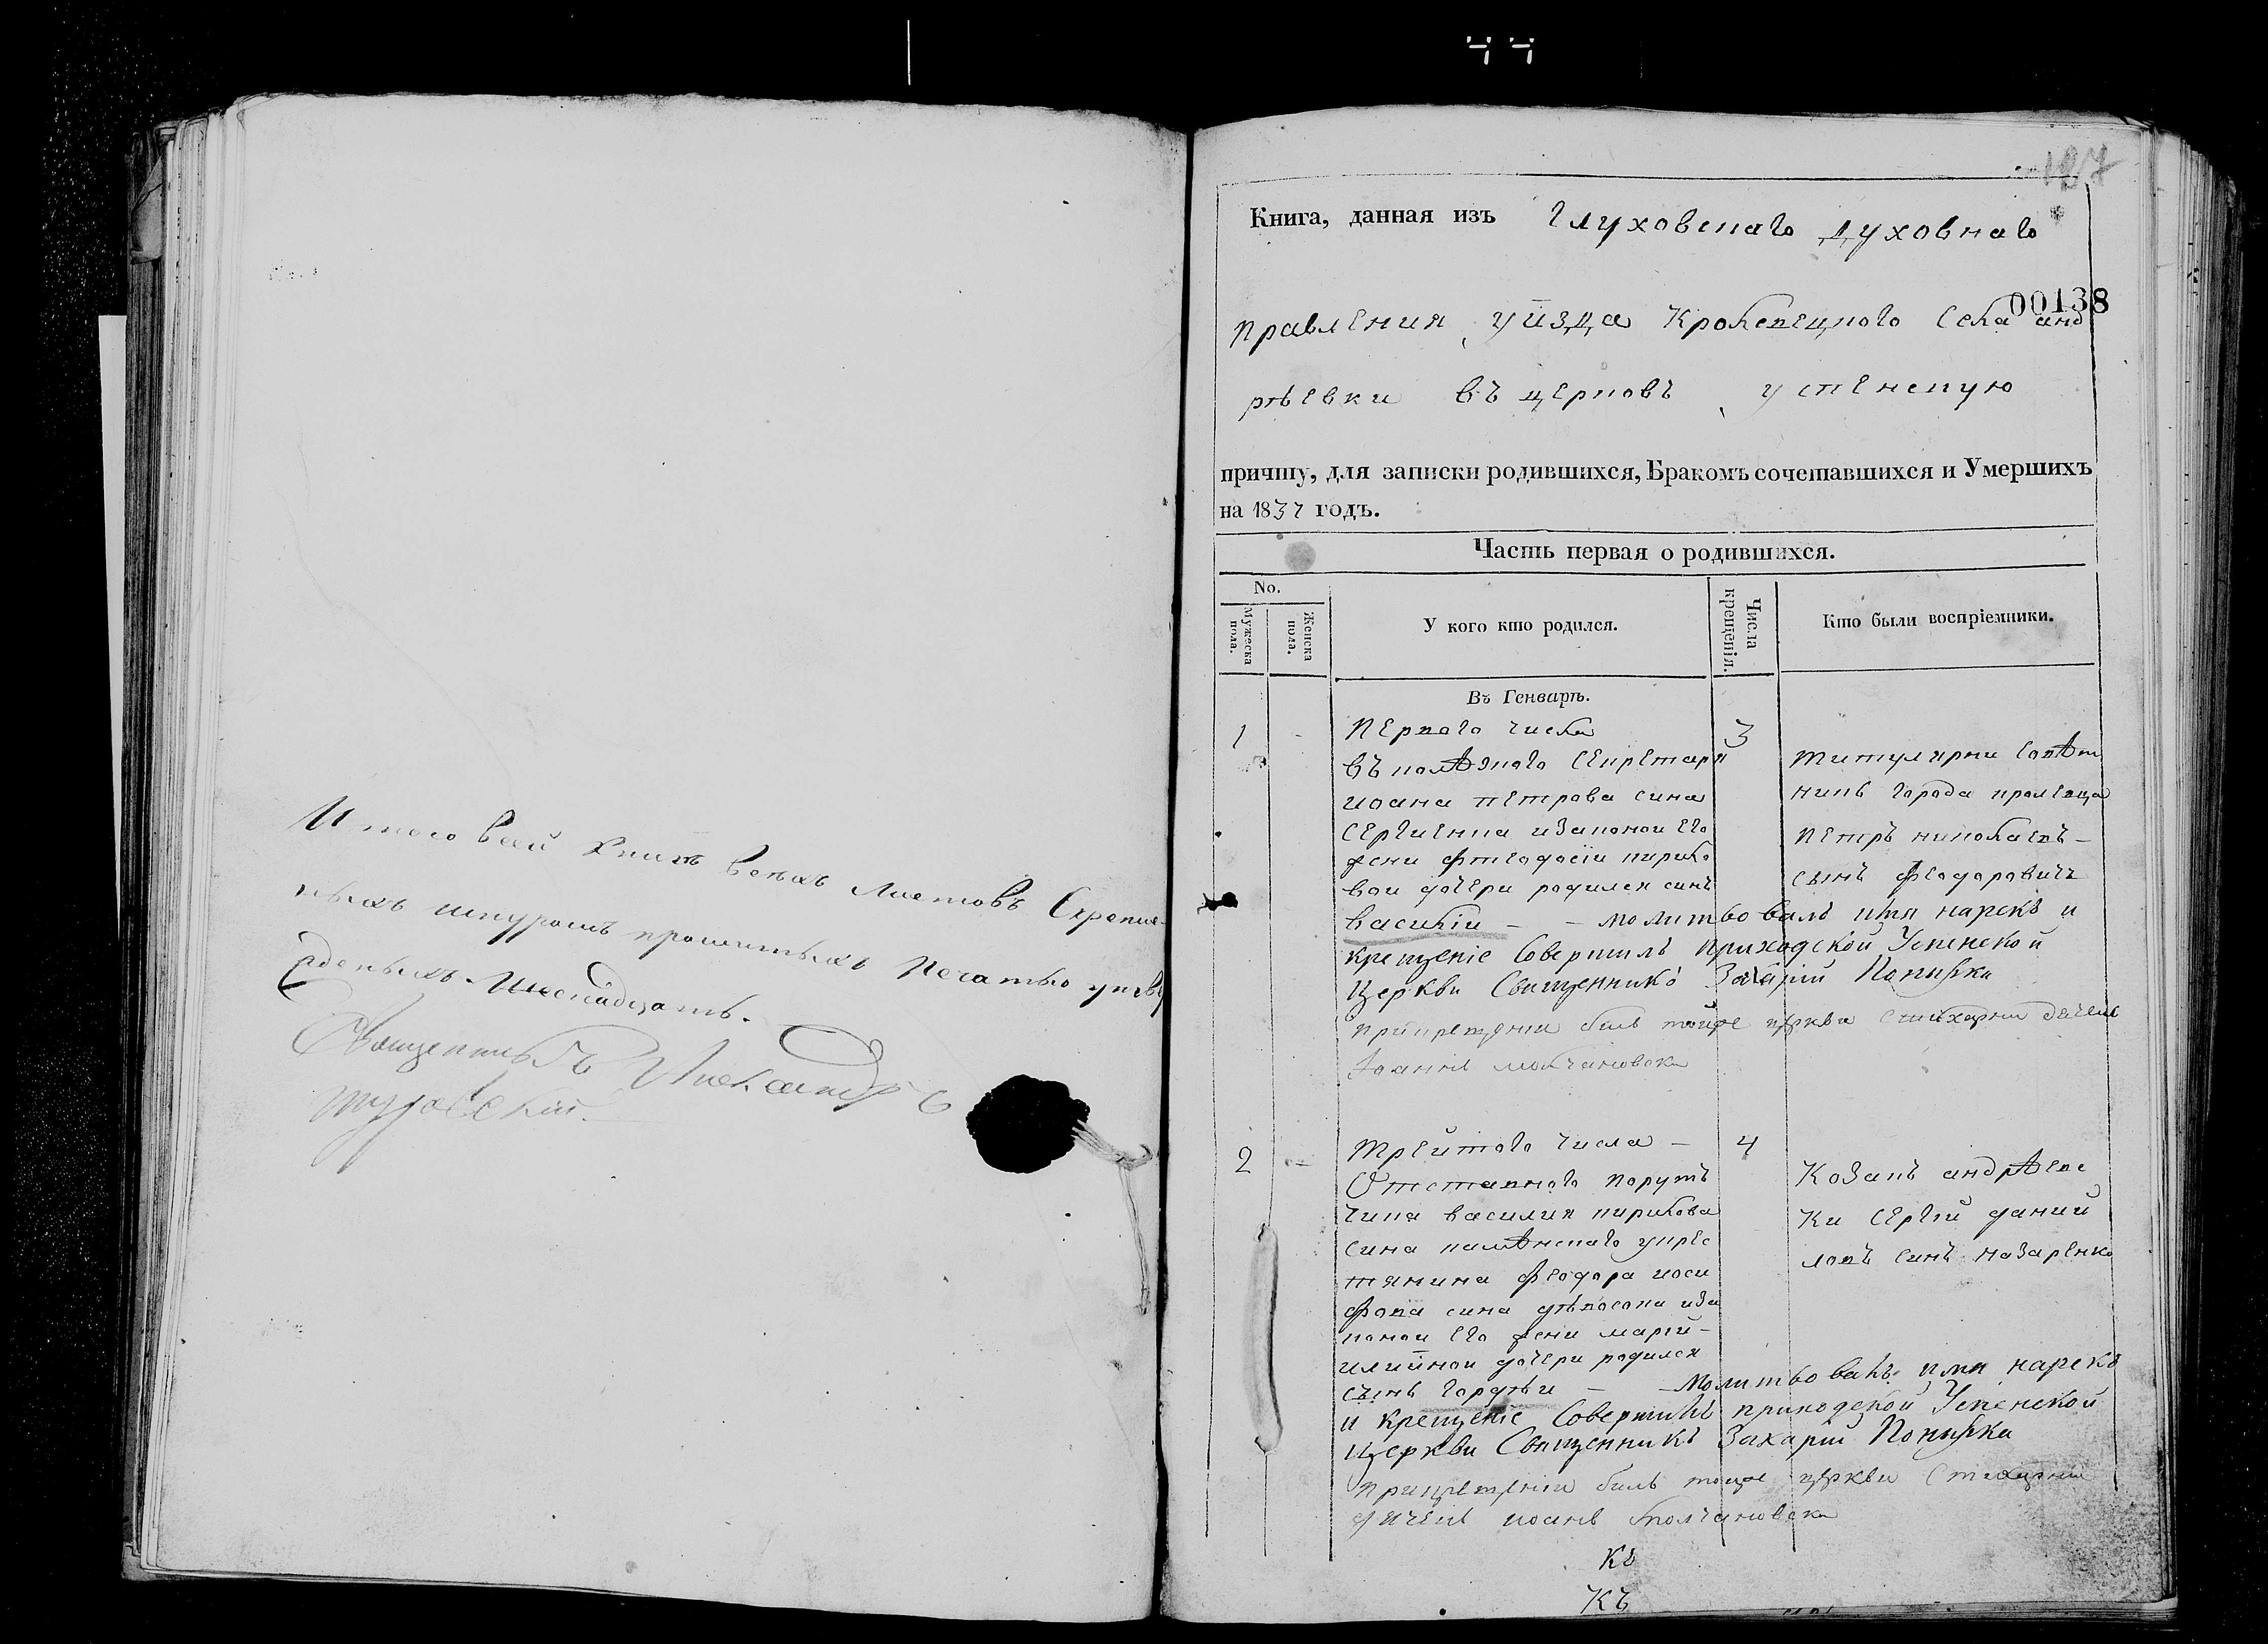 Итого всей книгѣ всѣхъ листовъ скрепле-
ныхъ шнуромъ прошитыхъ печатью утвер
жденыхъ шеснадцать.
Священникъ Александръ
Туровскій.
187
Книга, данная изъ Глуховскаго духовнаго
00138
правления, уйзда Кролевецкого села Анд
рѣевки въ церковъ успенскую
причту, для записки родившихся, Бракомъ сочетавшихся и Умершихъ
на 1837 годъ.
Часть первая о родившихся.
No.
Мужеска пола.
Женска пола.
У кого кто родился.
Числа крещенія.
Кто были воспріемники.
Въ Генварѣ.
1 - Первого числа 3
въ полѣвого секретаря
иоана петрова сина
Сергиенка изаконои его
жени фтеодосіи кирило
вои дочери родился синъ
василій - - молитвовалъ имя нарекъ и
крещеніе совершилъ приходской Успенской
Церкви Священникъ Захарій
при крещении билъ тойже церкви стихарни дячекъ
Іоаннъ молчановски
титулярни совѣт
никъ города кролевца
петръ николаевъ -
сынъ Феодоровичъ
2 - Трейтого числа - 4
Отставного порут
чика василия кирилова
сина камѣнского укрес
тянина феодора иоси
фова сина изa
коном его жени маріи -
илииной дочери родился
сынъ Гордѣи - - Молитвовалъ имя нарекъ
и крещеніе совершилъ приходской Успенской
Церкви Священникъ Захарій
при крещеніи билъ тоиже церкви стихарни
дячекъ иоанъ молчановски
Козакъ андрѣевс
ки Сергій даний
ловъ синъ назаренко
Къ
Къ